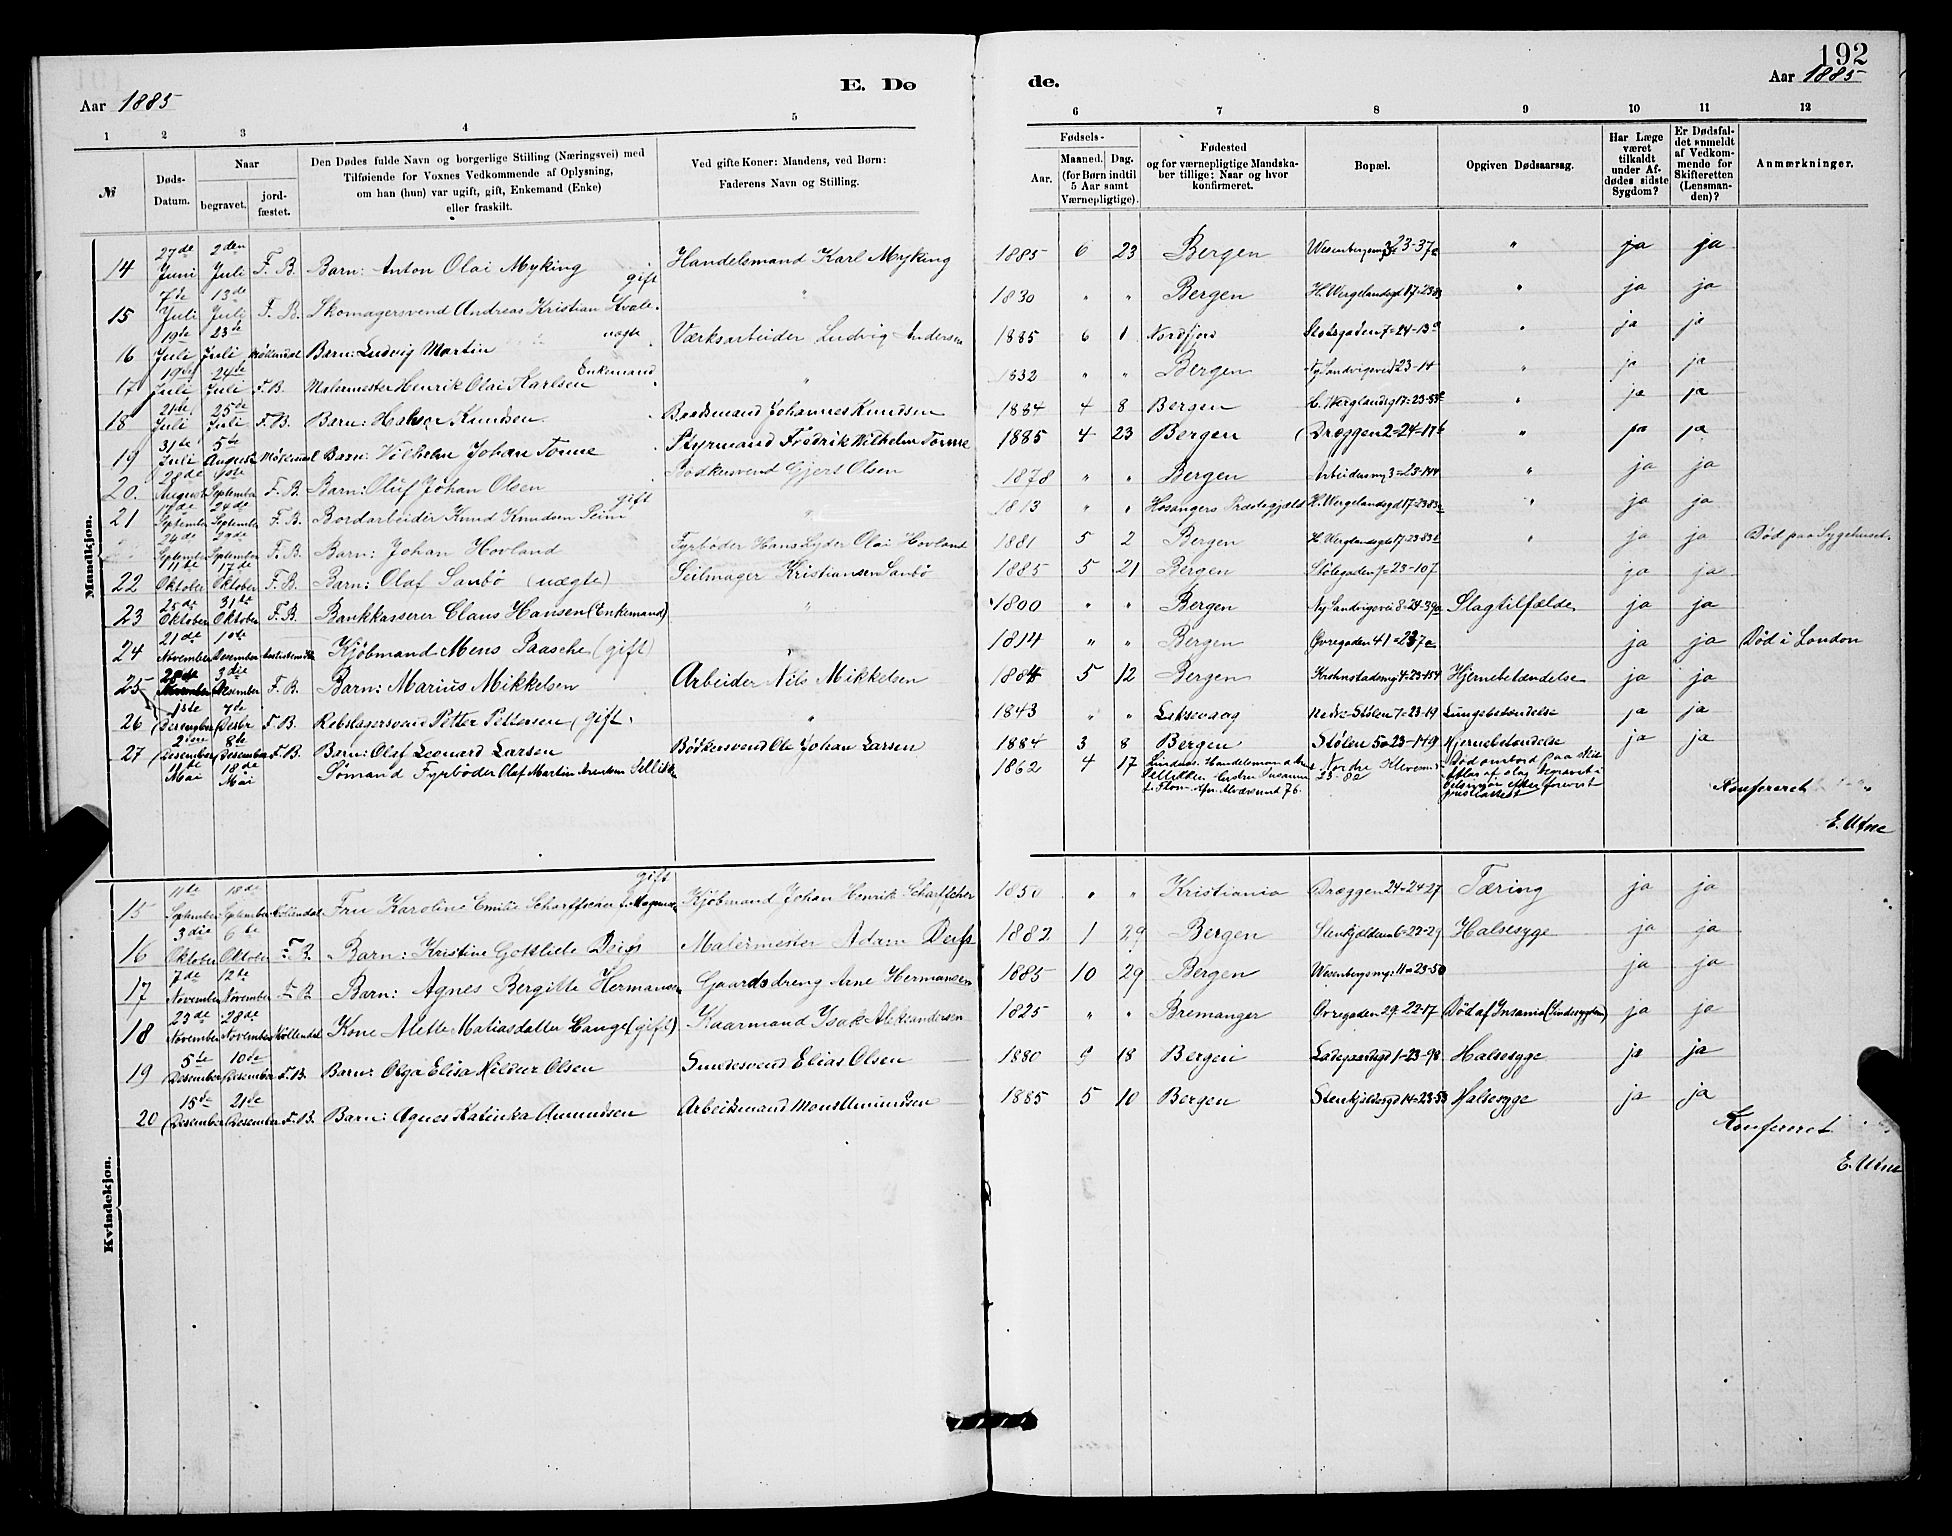 192
Aar 1885
E. Dø
de.
Aar 1885
1 2 3 4 5 6 7 8 9 10 11 12
№
Døds-Datum.
Naar
begravet.
jord-fæstet.
Den Dødes fulde Navn og borgerlige Stilling (Næringsvei) med
Tilføiende for Voxnes Vedkommende af Oplysning,
om han (hun) var ugift, gift, Enkemand (Enke)
eller fraskilt.
Ved gifte Koner: Mandens, ved Børn:
Faderens Navn og Stilling.
Fødsels-
Aar.
Maaned. Dag.
(for Børn indtil
5 Aar samt
Værnepligtige).
Fødested
og for værnepligtige Mandska-
ber tillige: Naar og hvor
konfirmeret.
Bopæl.
Opgiven Dødsaarsag.
Har Læge
været
tilkaldt
under Af-
dødes sidste
Sygdom?
Er Dødsfal-
det anmeldt
af Vedkom-
mende for
Skifteretten
(Lensman-
den)?
Anmærkninger.
Mandkjøn.
14 27de Juni 2den Juli F. B. Barn: Anton Olai Myking Handelsmand Karl Myking 1885 6 23 Bergen 23-37a " ja ja
15 7de Juli 13de Juli F. B. Skomagersvend Andreas Kristian Kvale gift " 1830 " " Bergen H. Wergelandsgd 17-23 " ja ja
16 19de Juli 23de Juli Møllendal Barn: Ludvig Martin uægte Værksarbeider Ludvig Andersen 1885 6 1 Nordfjord Slotsgaden 7-24-13a " ja ja
17 19de Juli 24de Juli F. B. Malermester Henrik Olai Karlsen Enkemand " 1832 " " Bergen Ny Sandvigsvei 23-14 " ja ja
18 21de Juli 25de Juli F. B. Barn: Knudsen Johannes Knudsen 1884 4 8 Bergen H. Werglandsgd 17-23 " ja ja
19 31te Juli 5te August Barn: Vilhelm Johan Torme Styrmand Fredrik Wilhelm Torme 1885 4 23 Bergen Dræggen 2-24-17b " ja ja
20. 28de August 1ste September F. B. Barn: Oluf Johan Olsen Bødkersvend Gjert Olsen 1878 " " Bergen 3-23-144 " ja ja
21 17de September 24de September F. B. Bordarbeider Knud Knudsen gift " 1813 " " Hosangers Præstegjæld H. Wergelandsgd 17-23 " ja ja
24de September 29de September F. B. Barn: Johan Hovland Fyrbøder Hans Lyder Olai Hovland 1881 5 2 Bergen H. Werglandsgd 17-23 " ja ja Død paa Sygehuset.
22 11te Oktober 17de Oktober F. B. Barn: Olaf Sanbø (uægte) Seilmager Kristiansen Sanbø 1885 5 21 Bergen Stølegaden 23-107 ja ja
23 25de Oktober 31te Oktober F. B. Bankkasserer Claus Hansen (Enkemand) " 1800 " " Bergen Ny Sandvigsvei 8-24-39a Slagtilfælde ja ja
24 21de November 1ste Desember Kjøbmand Mens Paasche (gift) 1814 " " Bergen Øvregaden 41 ja ja Død i London
25 28de November 3die Desember F. B. Barn: Marius Mikkelsen Arbeider Nils Mikkelsen 1884 5 12 Bergen 4-23-154 Hjernebetændelse ja ja
26 1ste Desember 7de Desbr F. B. Rebslagersvend Petter Pettersen (gift) " 1843 " " Laksevaag Nedre Stølen 7-23-19 Lungebetændelse ja ja
27 2den Desember 8de Desember F. B. Barn: Olaf Leonard Larsen Bødkersvend Ole Johan Larsen 1884 3 8 Bergen Stølen 5a 23-149 Hjernebetændelse ja ja
Mai 18de Mai Sømand Fyrbøder Olaf Martin 1862 4 17 Nordre
Konfereret
E. Utne
Kvindekjøn.
15 11te September 18de September Møllendal Fru Karoline Emilie gift Kjøbmand Johan Henrik 1850 " " Kristiania Dræggen 24-24-27 Tæring ja ja
16 3die Oktober 6te Oktober F. B. Barn: Kristine Gottliebe Malermester Adam 1882 1 29 Bergen 6-23-29 Halsesyge ja ja
17 7de November 12te November F. B. Barn: Agnes Bergitte Hermansen Gaardsdreng Arne Hermansen 1885 10 29 Bergen 11-23-50 ja ja
18 23de November 28de November Møllendal Kone Alette Matiasdatter Lange (gift) Kaarmand Isak Aleksandersen 1825 " " Bremanger Øvregaden 29-22-17 Død af Insania (Sindssygdom) ja ja
19 5te Desember 10de Desember F. B. Barn: Olga Elisa Hildur Olsen Smedesvend Elias Olsen 1880 9 18 Bergen Ladegaardsgd 1-23-98 Halsesyge ja ja
20 15de Desember 21de Desember F. B. Barn: Agnes Katinka Amundsen Arbeidsmand Mons Amundsen 1885 5 10 Bergen 14-23-53 Halsesyge ja ja
Konfereret
E. Utne